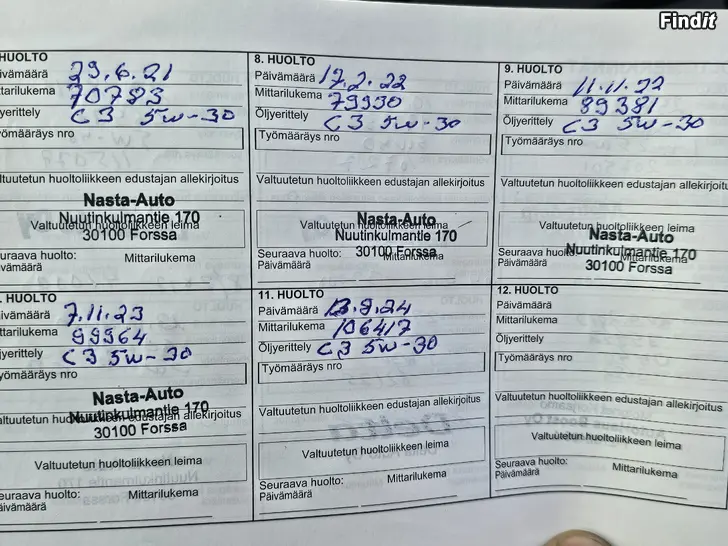 Findit
HUOLTO
äivämäärä 29.6.21
ittarilukema 70793
jyerittely C3 5W-30
yömääräys nro
altuutetun huoltoliikkeen edustajan allekirjoitus
Nasta-Auto
Nuutinkulmantie 170
Valtuutetun huoltoliikkeen leima
30100 Forssa
euraava huolto:
Mittarilukema
äivämäärä
8. HUOLTO
Päivämäärä 17.2.22
Mittarilukema 79990
Öljyerittely C3 5W-30
Työmääräys nro
Valtuutetun huoltoliikkeen edustajan allekirjoitus
Nasta-Auto
Valtuutetun huoltoliikkeen leima
Nuutinkulmantie 170
30100 Forssa
Seuraava huolto:
Mittarilukema
Päivämäärä
9. HUOLTO
Päivämäärä 11.11.22
Mittarilukema 89381
Öljyerittely C3 5W-30
Työmääräys nro
Valtuutetun huoltoliikkeen edustajan allekirjoitu
Valtuutetun huoltoliikkeen leima
Nasta-Auto
Nuutinkulmantie 170
30100 Forssa
Seuraava huolto:
Mittarilukema
Päivämäärä
. HUOLTO
äivämäärä 7.11.23
ttarilukema 99964
jyerittely C3 5W-30
yömääräys nro
Nasta-Auto
Nuutinkulmantie 170
altuutetun huoltoliikkeen edustajan allekirjoitus
30100 Forssa
Valtuutetun huoltoliikkeen leima
euraava huolto:
Mittarilukema
äivämäärä
11. HUOLTO
Päivämäärä 13.9.24
Mittarilukema 106417
Öljyerittely C3 5W-30
Työmääräys nro
Valtuutetun huoltoliikkeen edustajan allekirjoitus
Valtuutetun huoltoliikkeen leima
Seuraava huolto:
Mittarilukema
Päivämäärä
12. HUOLTO
Päivämäärä
Mittarilukema
Öljyerittely
Työmääräys nro
Valtuutetun huoltoliikkeen edustajan allekirjoitus
Valtuutetun huoltoliikkeen leima
Seuraava huolto:
Mittarilukema
Päivämäärä